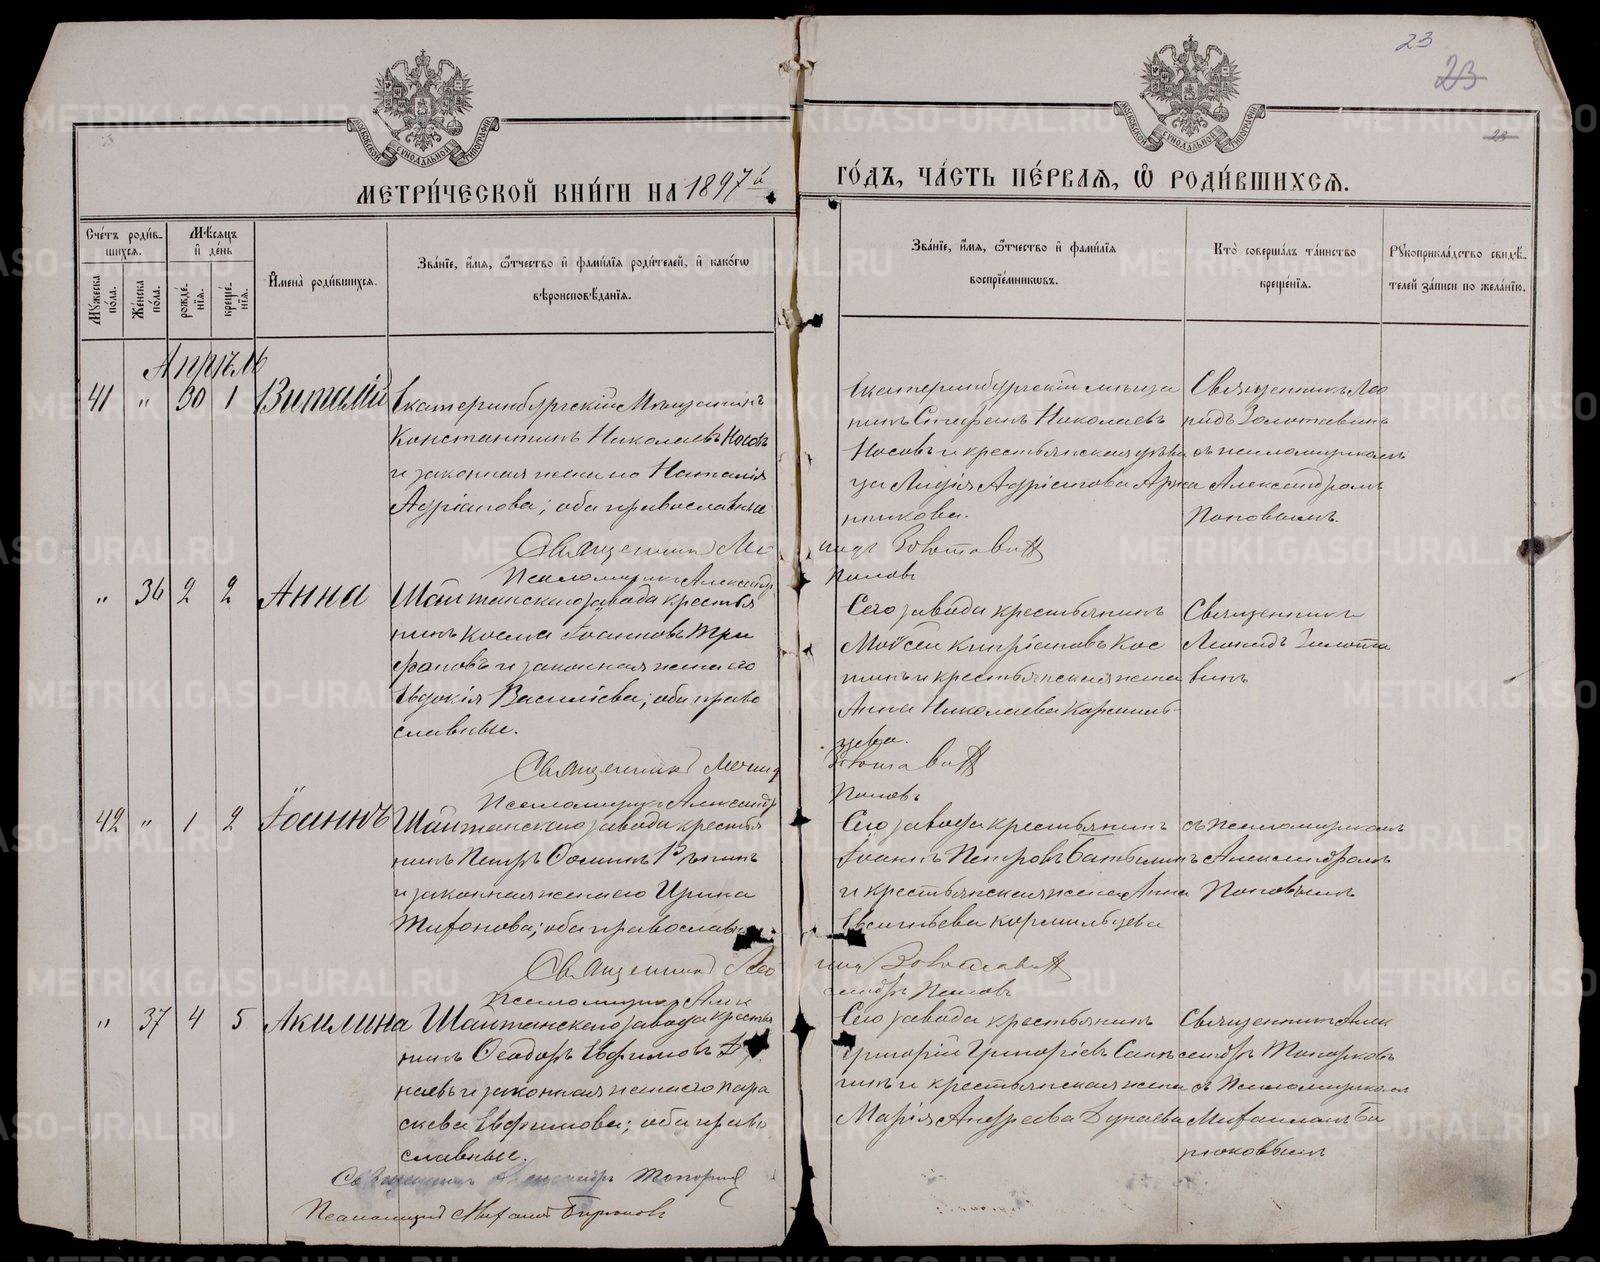 23
23
23
МЕТРИ́ЧЕСКОЙ КНИ́ГИ НА 1897й
ГО́ДЪ, ЧА́СТЬ ПЕ́РВАЯ, Ѡ РОДИ́ВШИХСЯ.
Сче́тъ роди́в-
шихся.
Мꙋ́жеска по́ла.
Же́нска по́ла.
Мѣ́сяцъ и де́нь
рожде́нія.
креще́нія.
Имена̀ роди́вшихся.
Зва́ніе, и́мя, ѿ́чество и фами́лія роди́телей, и како́гѡ
вѣроисповѣ́данія.
Зва́ніе, и́мя, ѿ́чество и фами́лія
воспріе́мникѡвъ.
Кто̀ соверша́лъ та́инство
креще́нія.
Рꙋкоприкла́дство свидѣ́-
телей за́писи по жела́нію.
Апрѣль
41 " 30 1 Виталій
Екатеринбургскій Мѣщанинъ
Константинъ Николаевъ Носовъ
и законная жена его Наталія
Адріанова; оба православные
Екатеринбургскій мѣща
нинъ Стефанъ Николаевъ
Носовъ и крестьянская дѣви
ца Лидія Адріанова
Священникъ Лео
нидъ Золотавинъ
съ псаломщикомъ
Александромъ
Поповымъ.
Священникъ Леонидъ Золотавинъ
Псаломщикъ Александръ Поповъ
" 36 2 2 Анна
Шайтанскаго завода крестья
нинъ Косма Іоанновъ Три
фановъ и законная жена его
Евдокія Василіева; оба право
славные.
Сего завода крестьянинъ
Моѵсей Кипріановъ Кос
тинъ и крестьянская жена
Анна Николаева Кормиль-
цева.
Священникъ
Леонидъ Золота
винъ
Священникъ Леонидъ Золотавинъ
Псаломщикъ Александръ Поповъ
42 " 1 2 Іоаннъ
Шайтанскаго завода крестья
нинъ Петръ Ѳоминъ
и законная жена его Ирина
Тихонова; оба православные.
Сего завода крестьянинъ
Іоаннъ Петровъ
и крестьянская жена Анна
Евгеніева Кормильцева
съ псаломщикомъ
Александромъ
Поповымъ
Священникъ Леонидъ Золотавинъ
Псаломщикъ Александръ Поповъ
" 37 4 5 Акилина
Шайтанскаго завода крестья
нинъ Ѳеодоръ Евфимовъ Ду
наевъ и законная жена его Пара
скева Евфимова; оба право
славные.
Сего завода крестьянинъ
Григорій Григоріевъ
и крестьянская жена
Марія Андреева Дунаева
Священникъ Алек
сандръ Топорковъ
съ псаломщикомъ
Михаиломъ Би
рюковымъ
Священникъ Александръ Топорковъ
Псаломщикъ Михаилъ Бирюковъ
METRIKI.GASO-URAL.RU